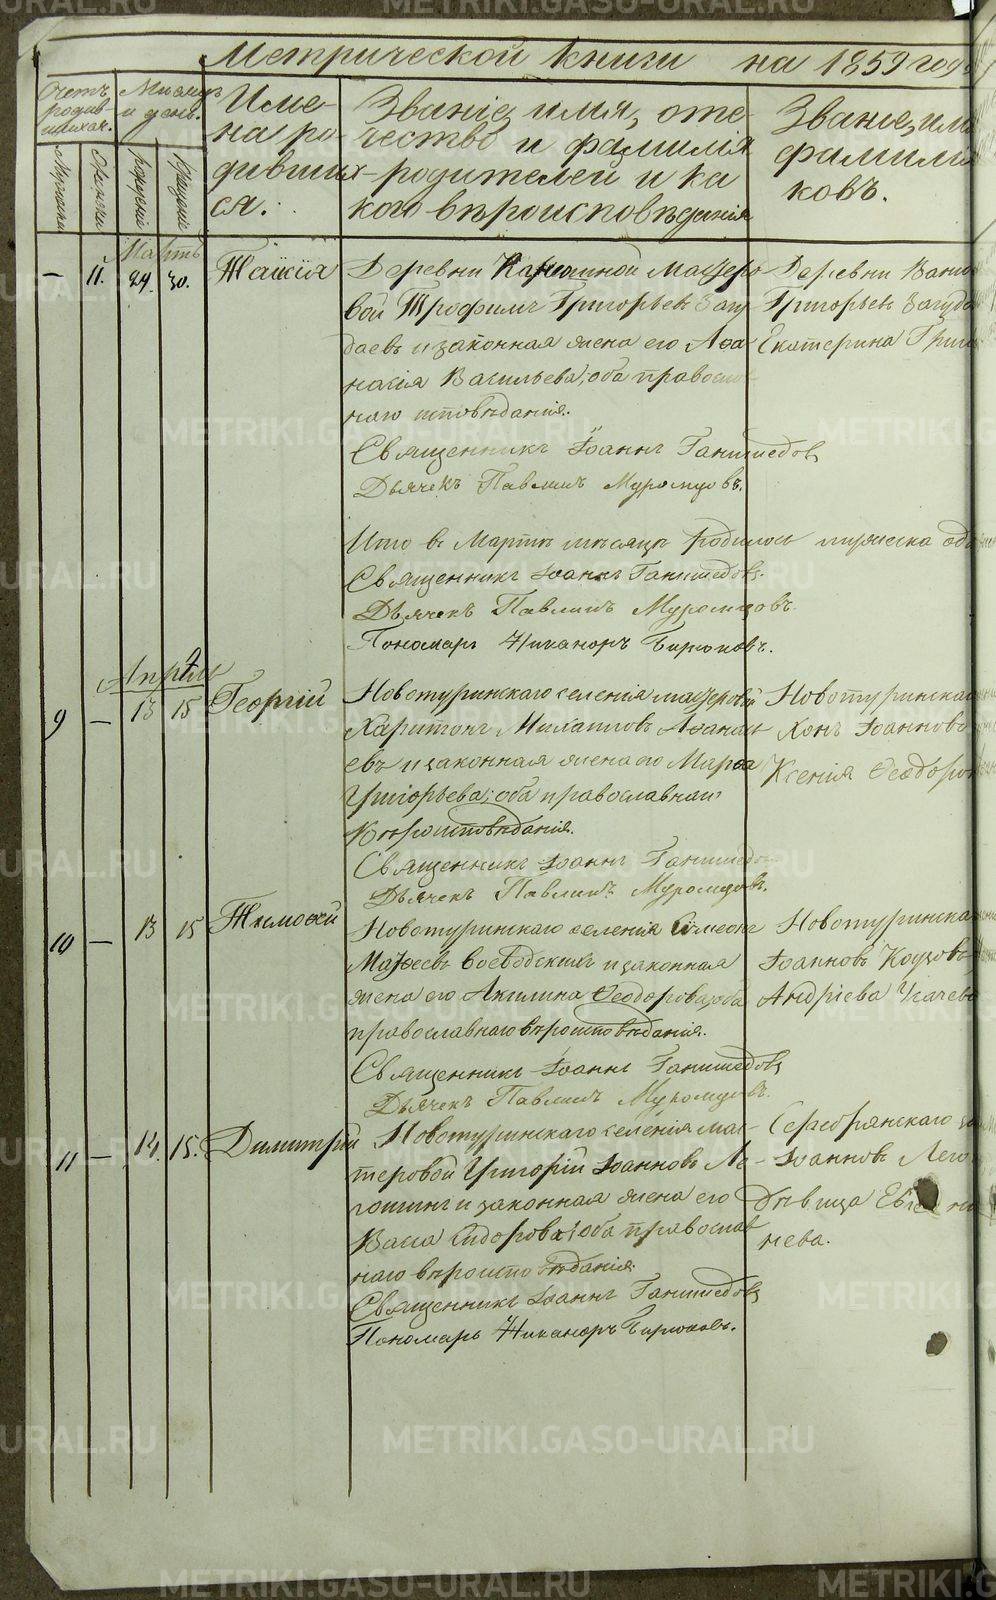 Метрической книги на 1859 годъ
Счетъ родив-шихся.
Месяцъ и день.
Име-
на ро-
дивших-
ся.
Званіе, имя, оте-
чество и фамилія
родителей и ка
кого вѣроисповѣданія
Званіе, имя
фамилія
ковъ.
Мужеска
Женска
рожденіе
Крещеніе
Мартъ
— 11. 24. 30. Таисія
Деревни мастеро
вой Трофимъ Григорьевъ Загу
даевъ и законная жена его Аѳа
насія Васильева, оба православ
наго исповѣданія.
Священникъ Іоаннъ
Дьячекъ Павлинъ Муромцовъ.
Деревни
Григорьевъ Загуда
Екатерина Григ
Итого въ Мартѣ мѣсяцѣ родилось мужеска
Священникъ Іоаннъ
Дьячекъ Павлинъ Муромцовъ.
Пономарь Никаноръ Бирюковъ.
Апрѣль
9 — 13 15 Георгій
Новотуринскаго селенія мастеровой
Харитонъ Михаиловъ Аѳанась
евъ и законная жена его Марѳа
Григорьева; оба православнаго
вѣроисповѣданія.
Священникъ Іоаннъ
Дьячекъ Павлинъ Муромцовъ.
Новотуринскаго
Іоанновъ
Ксенія Ѳеодоро
10 — 13 15 Тимоѳей
Новотуринскаго селенія Симеонъ
Матѳеевъ Воеводскихъ и законная
жена его Акилина Ѳеодорова, оба
православнаго вѣроисповѣданія.
Священникъ Іоаннъ
Дьячекъ Павлинъ Муромцовъ.
Новотуринска
Іоанновъ Козловъ
Андріева Усачева
11 — 14. 15. Димитрій
Новотуринскаго селенія мас-
теровой Григорій Іоанновъ Ле-
гошинъ и законная жена его
Васса Сидорова, оба православ
наго вѣроисповѣданія.
Священникъ Іоаннъ
Пономарь Никаноръ Бирюковъ.
Серебрянскаго
Іоанновъ Лего
Дѣвица
нева.
METRIKI.GASO-URAL.RU